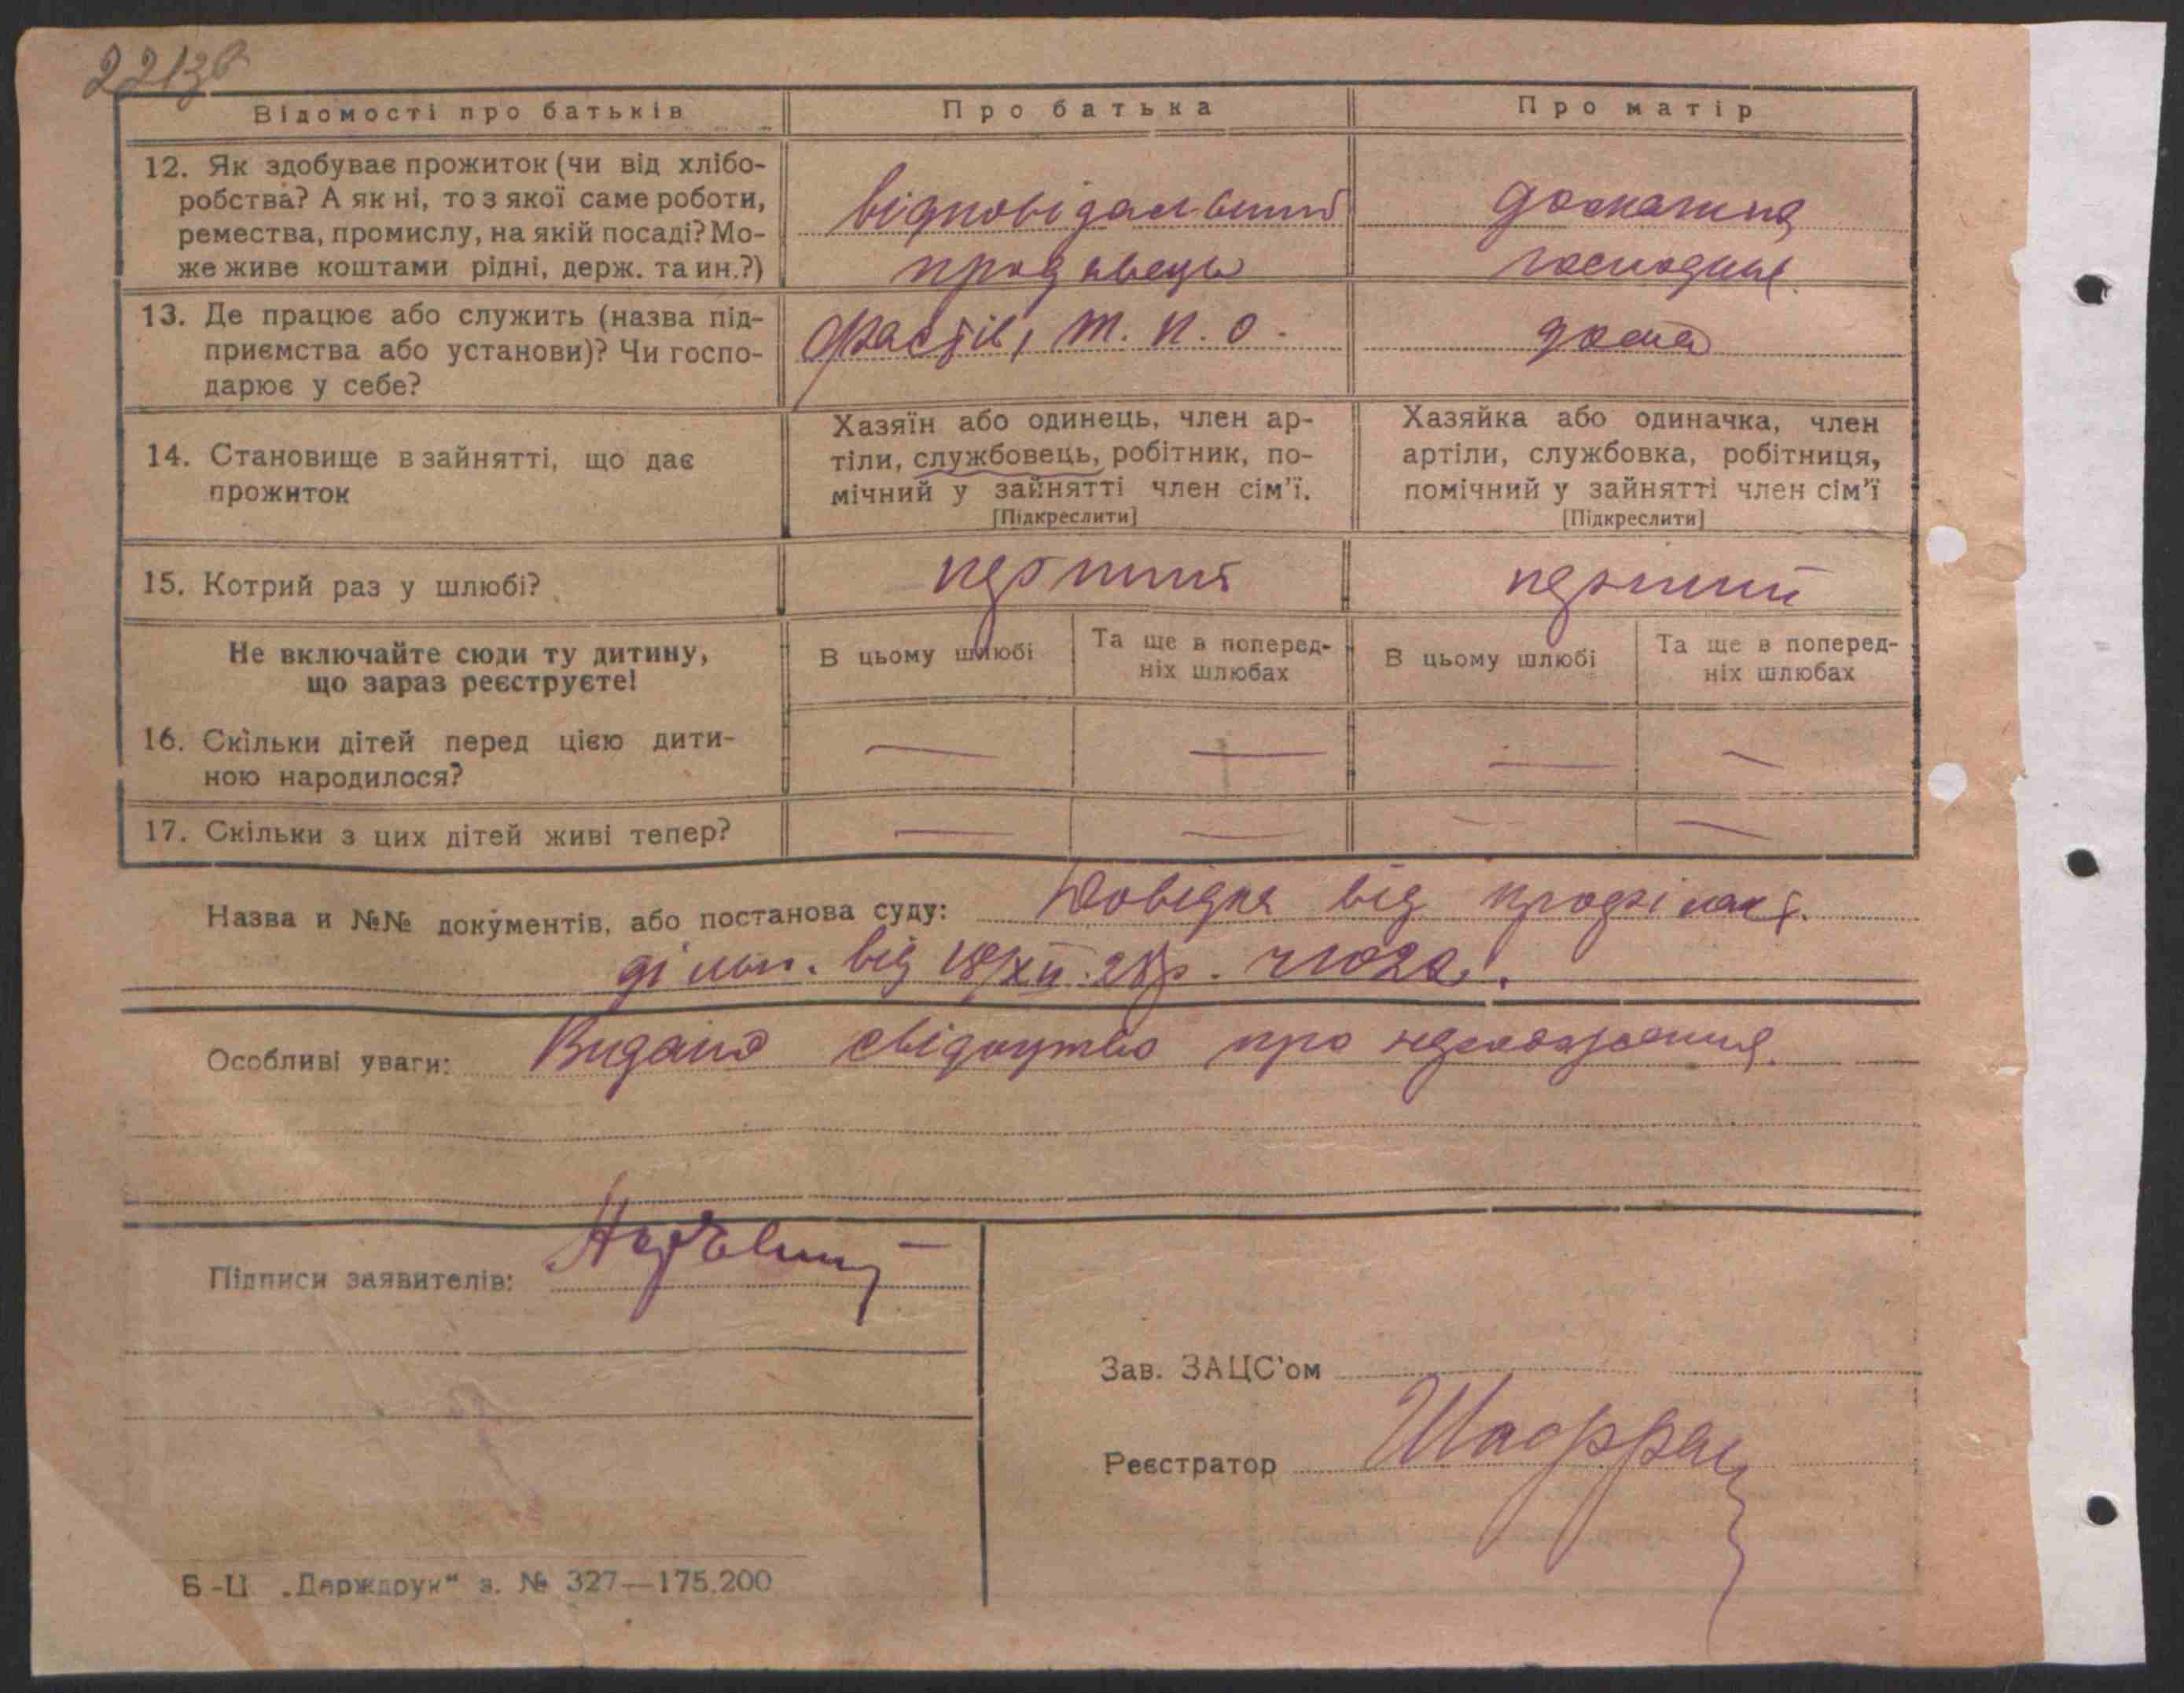 Відомості про батьків
Про батька
Про матір
12. Як здобуває прожиток (чи від хлібо-
робства? А як ні, то з якої саме роботи,
ремества, промислу, на якій посаді? Мо-
же живе коштами рідні, держ. та ин.?)
відповідальний
продавець
домашня
господиня
13. Де працює або служить (назва під-
приємства або установи)? Чи госпо-
дарює у себе?
Фастів, т. п. о.
дома
14. Становище в зайнятті, що дає
прожиток
Хазяїн або одинець, член ар-
тіли, службовець, робітник, по-
мічний у зайнятті член сім'ї.
[Підкреслити]
Хазяйка або одиначка, член
артіли, службовка, робітниця,
помічний у зайнятті член сім'ї
[Підкреслити]
15. Котрий раз у шлюбі?
перший
перший
Не включайте сюди ту дитину,
що зараз реєструєте!
В цьому шлюбі
Та ще в поперед-
ніх шлюбах
В цьому шлюбі
Та ще в поперед-
ніх шлюбах
16. Скільки дітей перед цією дити-
ною народилося?
— — — —
17. Скільки з цих дітей живі тепер?
— — — —
Назва и №№ документів, або постанова суду: Довідка від профілакт.
дільн. від 18/XII 28р.
Особливі уваги: Видано свідоцтво про народження.
Підписи заявителів:
Зав. ЗАЦС'ом
Реєстратор
Б-Ц „Держдрук" з. № 327—175.200